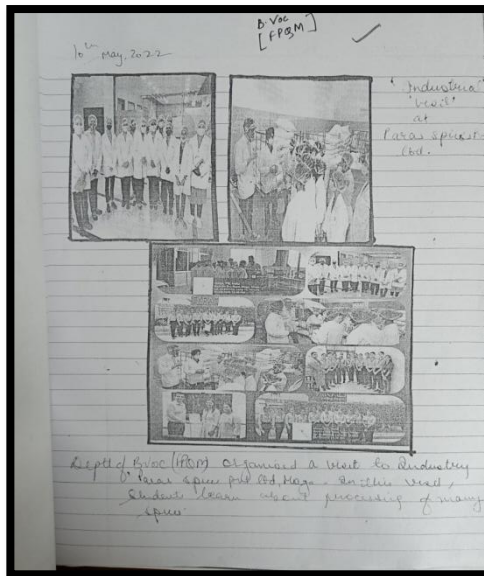 B.Voc
[FPQM]
10th May, 2022
"Industrial
Visit"
at
Paras Spices
Ltd.
Deptt of B.Voc (FPQM) organised a visit to Industry
Paras Spices Pvt Ltd, Moga. In this visit,
Students learn about processing of many